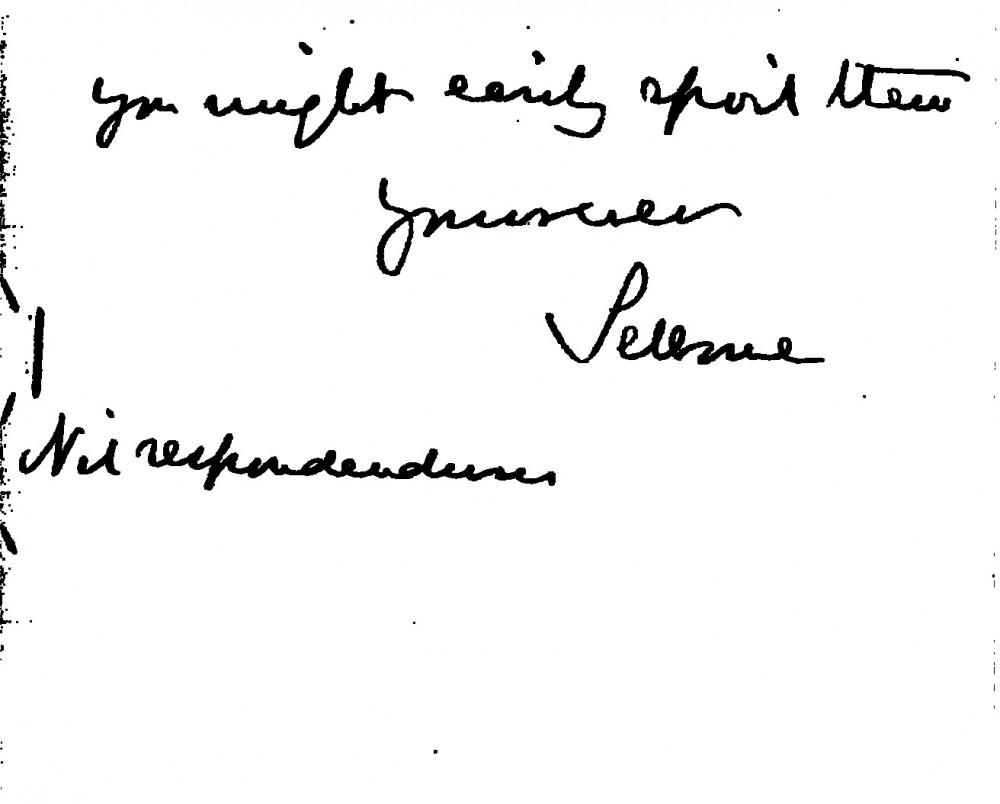 you might easily spoil them
Yours ever
Selborne
Nil respondendum